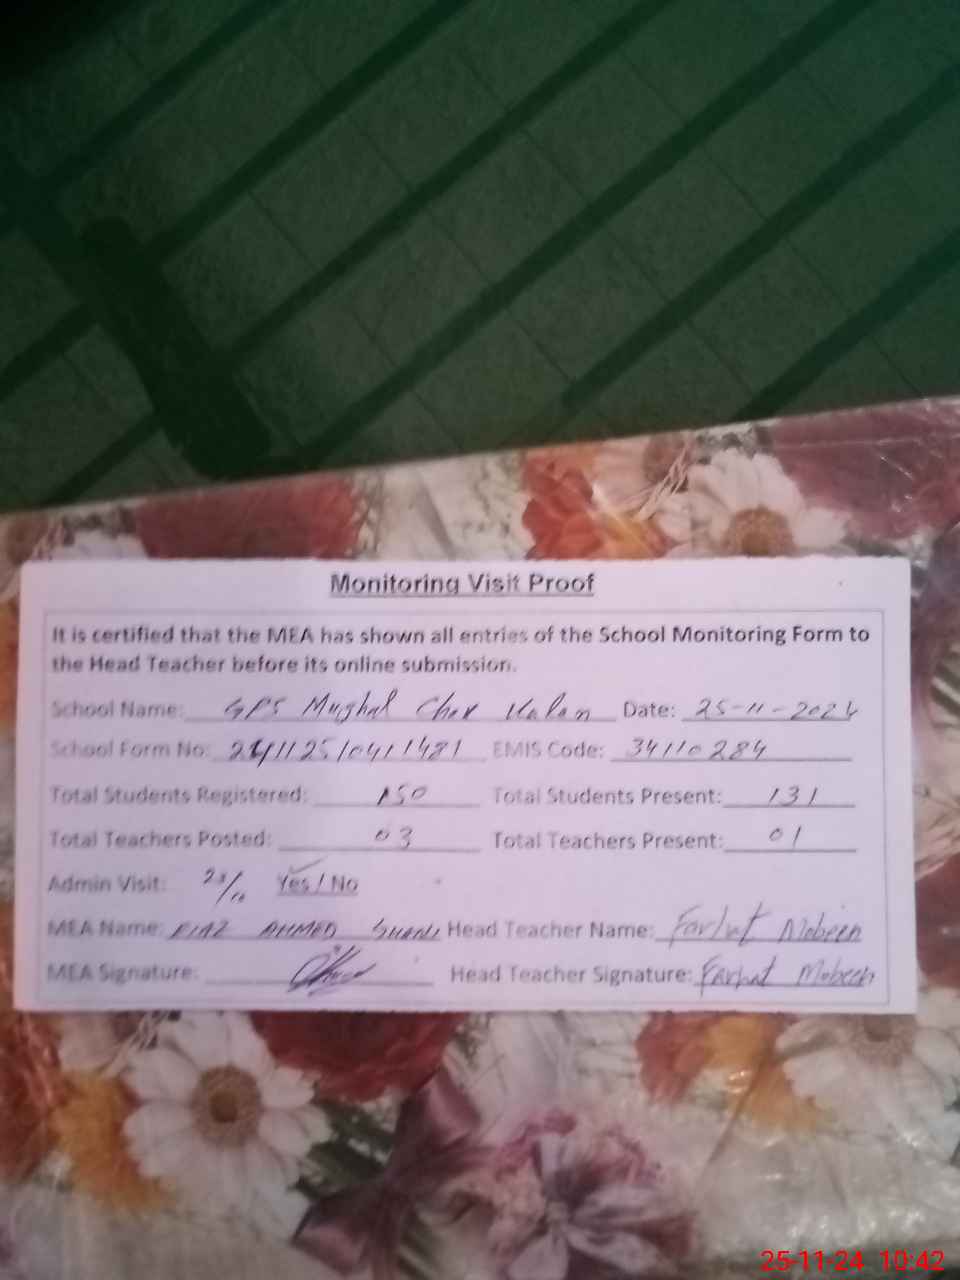 Monitoring Visit Proof
It is certified that the MEA has shown all entries of the School Monitoring Form to
the Head Teacher before its online submission.
School Name: GPS Mughal Chak Kalan Date: 25-11-2024
School Form No: EMIS Code: 34110284
Total Students Registered: 150 Total Students Present: 131
Total Teachers Posted: 03 Total Teachers Present: 01
Admin Visit: Yes / No
MEA Name: AHMED Head Teacher Name: Farhat Mobeen
MEA Signature: Head Teacher Signature: Farhat Mobeen
25-11-24 10:42